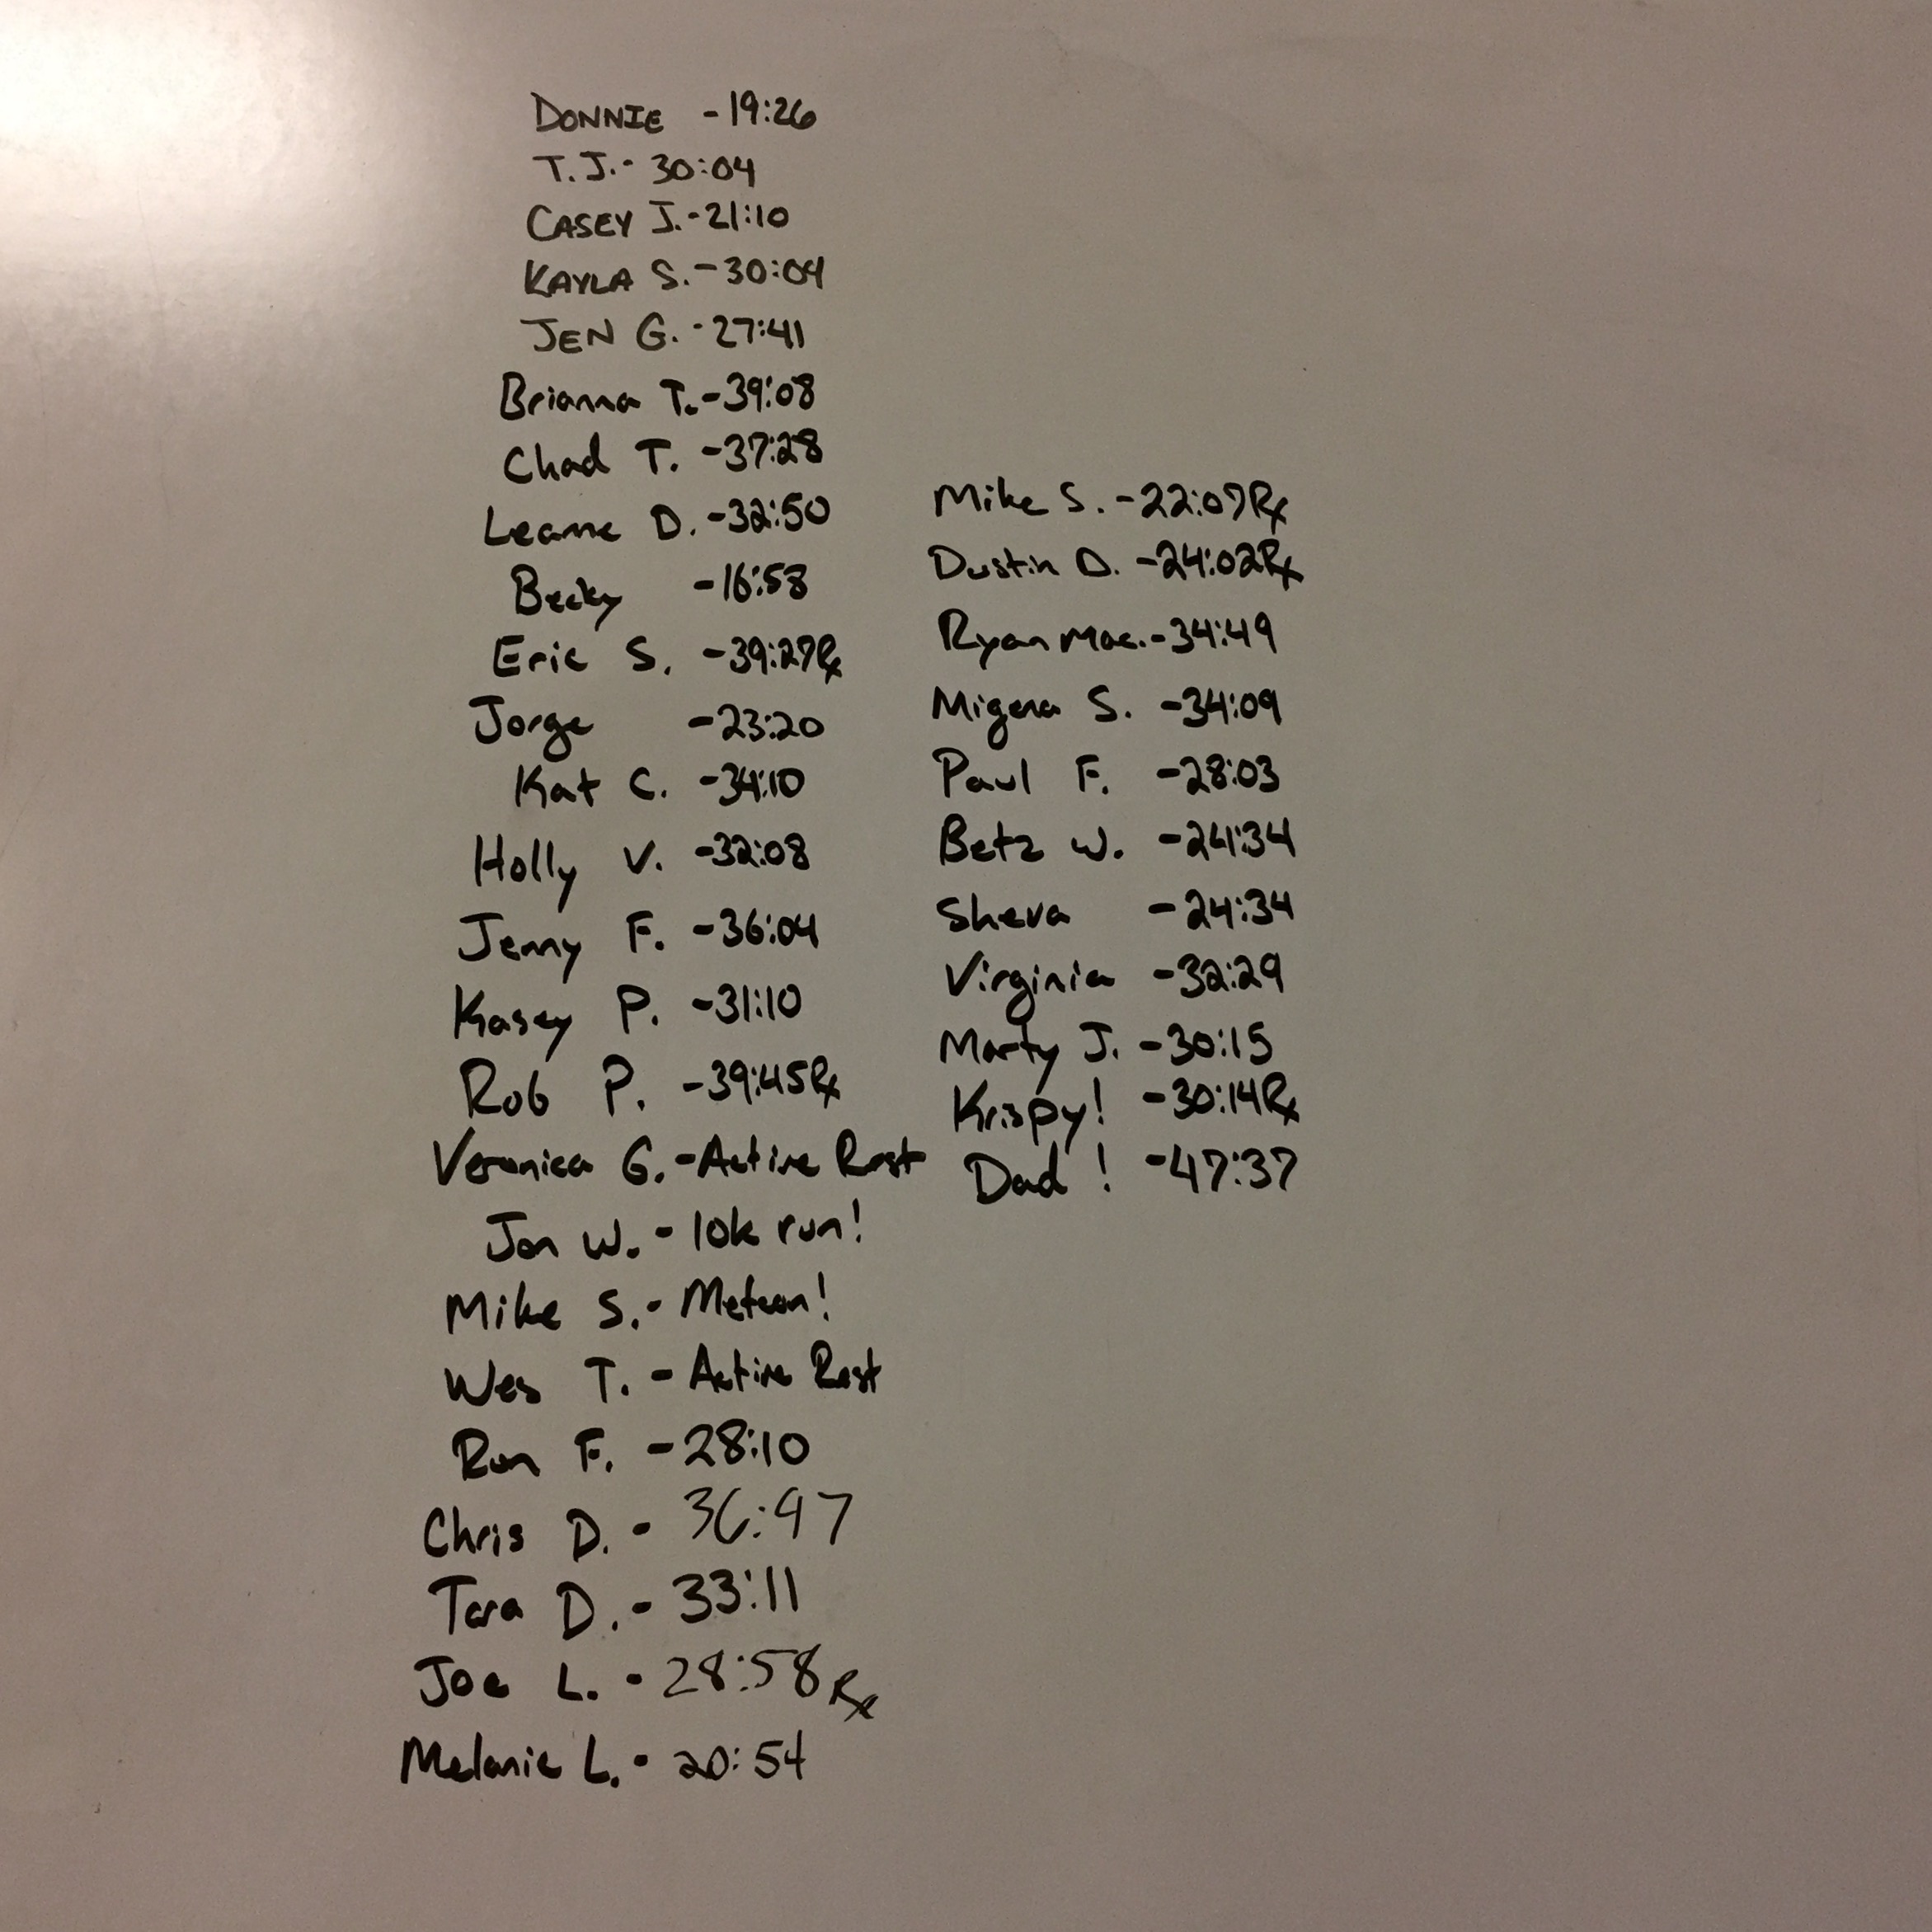 DONNIE - 19:26
T.J. - 30:04
CASEY J. - 21:10
KAYLA S. - 30:04
JEN G. - 27:41
Brianna T. - 39:08
Chad T. - 37:28
Leanne D. - 32:50
Becky - 16:58
Eric S. - 39:27 Rx
Jorge - 23:20
Kat C. - 34:10
Holly V. - 32:08
Jenny F. - 36:04
Kasey P. - 31:10
Rob P. - 39:45 Rx
Veronica G. - Active Rest
Jon W. - 10k run!
Mike S. - Metcon!
Wes T. - Active Rest
Ron F. - 28:10
Chris D. - 36:47
Tara D. - 33:11
Joe L. - 28:58 Rx
Melanie L. - 20:54
Mike S. - 22:07 Rx
Dustin D. - 24:02 Rx
Ryan Mac. - 34:49
Migena S. - 34:09
Paul F. - 28:03
Betz W. - 24:34
Sheva - 24:34
Virginia - 32:29
Marty J. - 30:15
Krispy! - 30:14 Rx
Dad! - 47:37